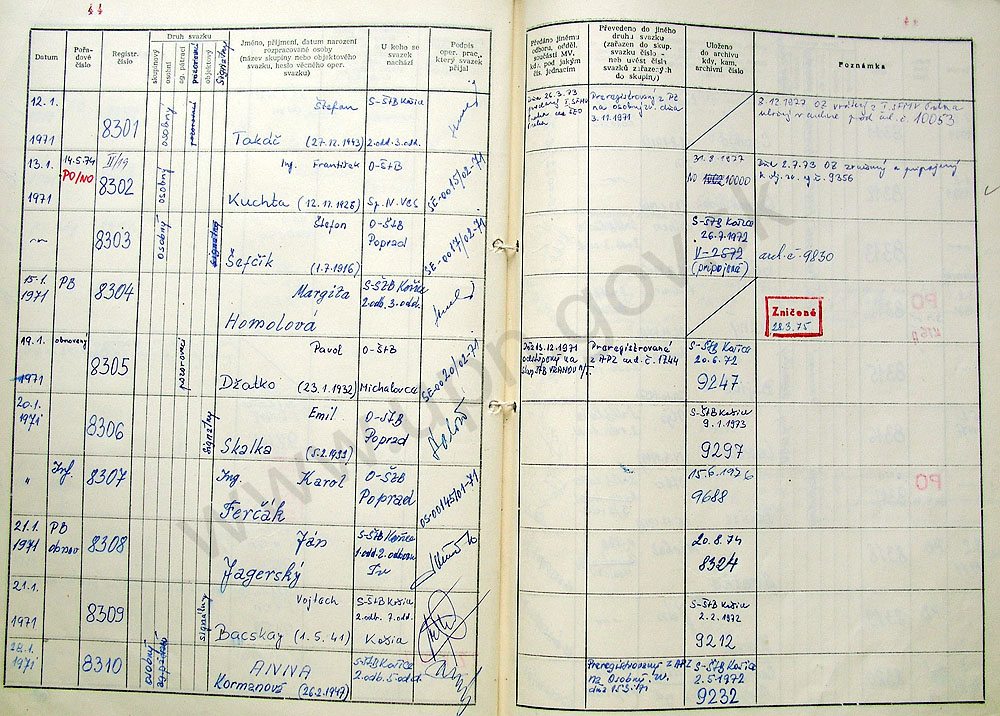 44
Datum
Pořadové číslo
Registr. číslo
Druh svazku
skupinový
osobní
ag. pátrací
pozorovací
objektový
signálny
Jméno, příjmení, datum narození rozpracované osoby
(název skupiny nebo objektového svazku, heslo věcného oper. svazku)
U koho se svazek nachází
Podpis oper. prac., který svazek přijal
Předáno jinému odboru, odděl. součásti MV, kdy, pod jakým čís. jednacím
Převedeno do jiného druhu svazku
(zařazen do skup. svazku číslo - neb uvést čísla svazků zařazených do skupiny)
Uloženo do archivu kdy, kam, archivní číslo
Poznámka
12.1.
1971
8301
osobný
Štefan
Takáč (27.12.1943)
S-ŠtB Košice
2.odd. 3.odb.
Preregistrovaný z PZ
na osobný zv. dňa
3.11.1971
10053
13.1.
1971
14.5.74
PO/NO
II/19
8302
osobný
Ing. František
Kuchta (12.11.1926)
O-ŠtB
Sp. N. Ves
SE-0015/02-71
31.8.1977
NO 10000
Dňa 2.7.73 OZ zrušený a pripojený
k obj. zv. č. 9356
8303
osobný
signálny
Štefan
Šefčík (1.7.1916)
O-ŠtB
Poprad
SE-0017/02-71
S-ŠtB Košice
26.7.1972
V-2672
(pripojená)
arch. č. 9830
15.1.
1971
PB
8304
Margita
Homolová
S-ŠtB Košice
2.odb. 3.odd.
Zničené
28.3.75
19.1.
1971
obnovený
8305
pozorovací
Pavol
Džatko (23.1.1932)
O-ŠtB
Michalovce
SE-0020/02-71
Dňa 13.12.1971
odstúpený na
Preregistrovaná
z APZ arch. č. 1744
S-ŠtB Košice
20.6.72
9247
20.1.
1971
8306
signálny
Emil
Skalka
O-ŠtB
Poprad
S-ŠtB Košice
9.1.1973
9297
"
Inf.
8307
Ing. Karol
Ferčák
O-ŠtB
Poprad
OS-00145/01-71
15.6.1976
9688
21.1.
1971
PB
obnov
8308
Ján
Jagerský
S-ŠtB Košice
1.odd. 2.odboru
20.8.74
8324
21.1.
1971
8309
signálny
Vojtech
Bacskay (1.5.41)
S-ŠtB Košice
2.odb. 7.odd.
Košice
S-ŠtB Košice
2.2.1972
9212
1971
8310
osobný
Kormanová (26.2.1947)
S-ŠtB Košice
2.odb. 5.odd.
Preregistrovaný z APZ
na Osobný
S-ŠtB Košice
2.5.1972
9232
www.upn.gov.sk